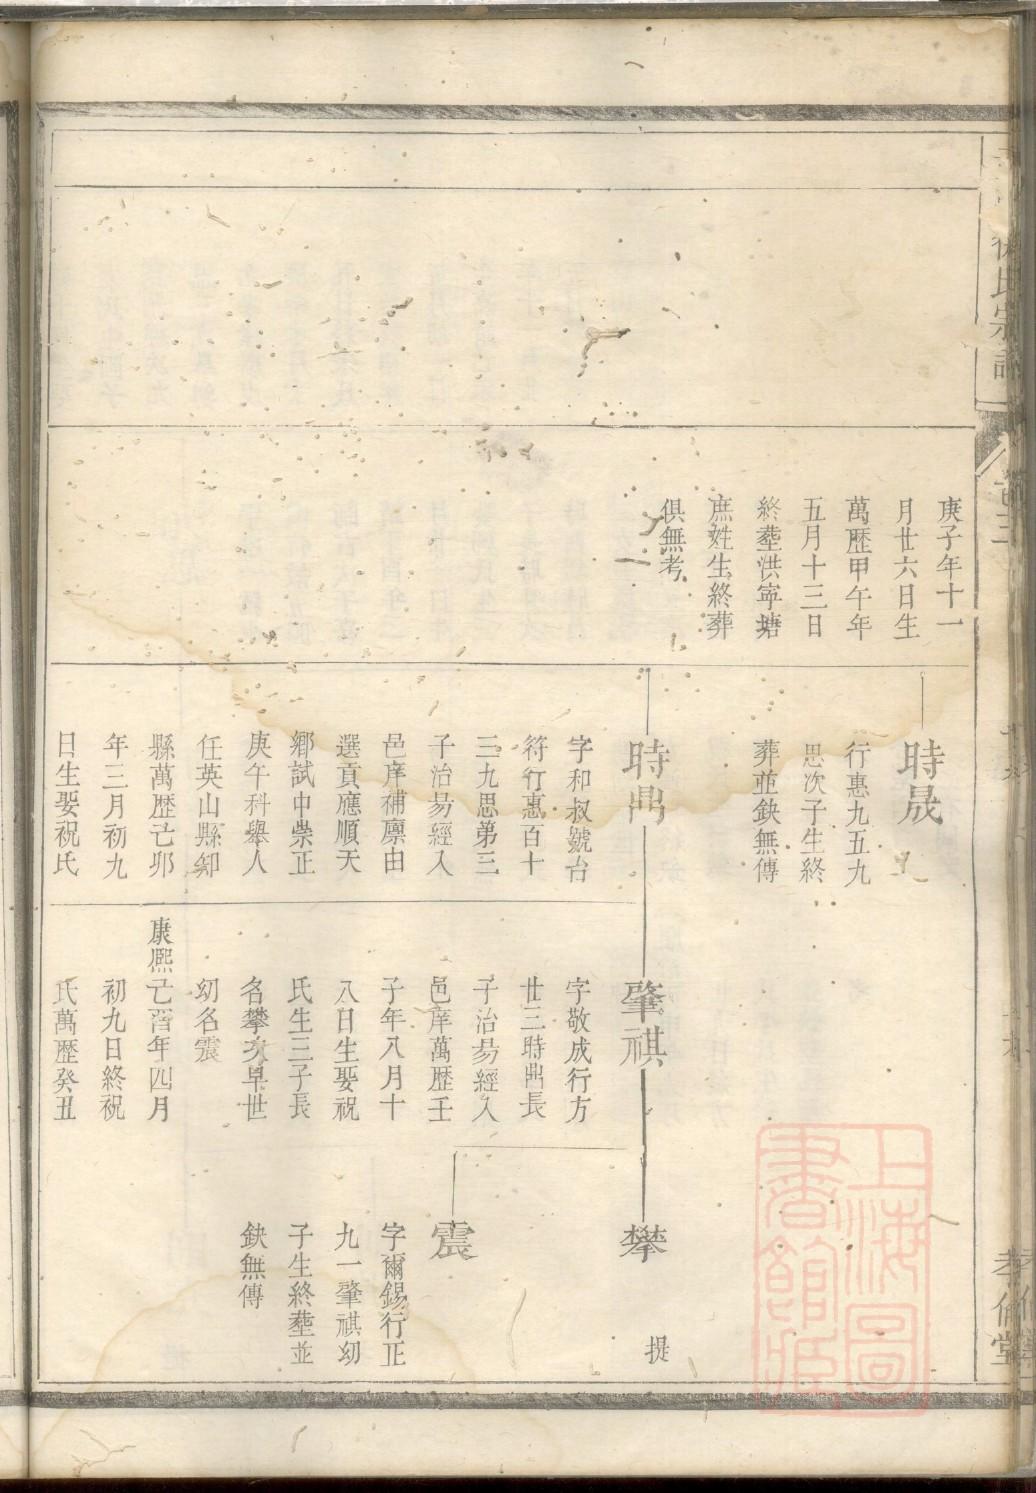 氏宗譜
庚子年十一
月廿六日生
萬歷甲午年
五月十三日
終塟洪寧塘
庶姓生終葬
俱無考
時晟
行惠九五九
思次子生終
葬並缺無傳
時鼎
字和叔號台
符行惠百十
三九思第三
子治易經入
邑庠補廩由
選貢應順天
鄉試中崇正
庚午科舉人
任英山縣知
縣萬歷己卯
年三月初九
日生娶祝氏
肇祺
字敬成行方
廿三時鼎長
子治易經入
邑庠萬歷壬
子年八月十
八日生娶祝
氏生三子長
名攀次早世
幼名震
康熙己酉年四月
初九日終祝
氏萬歷癸丑
攀
提
震
字爾錫行正
九一肇祺幼
子生終塟並
缺無傳
孝備堂
上海圖書館藏